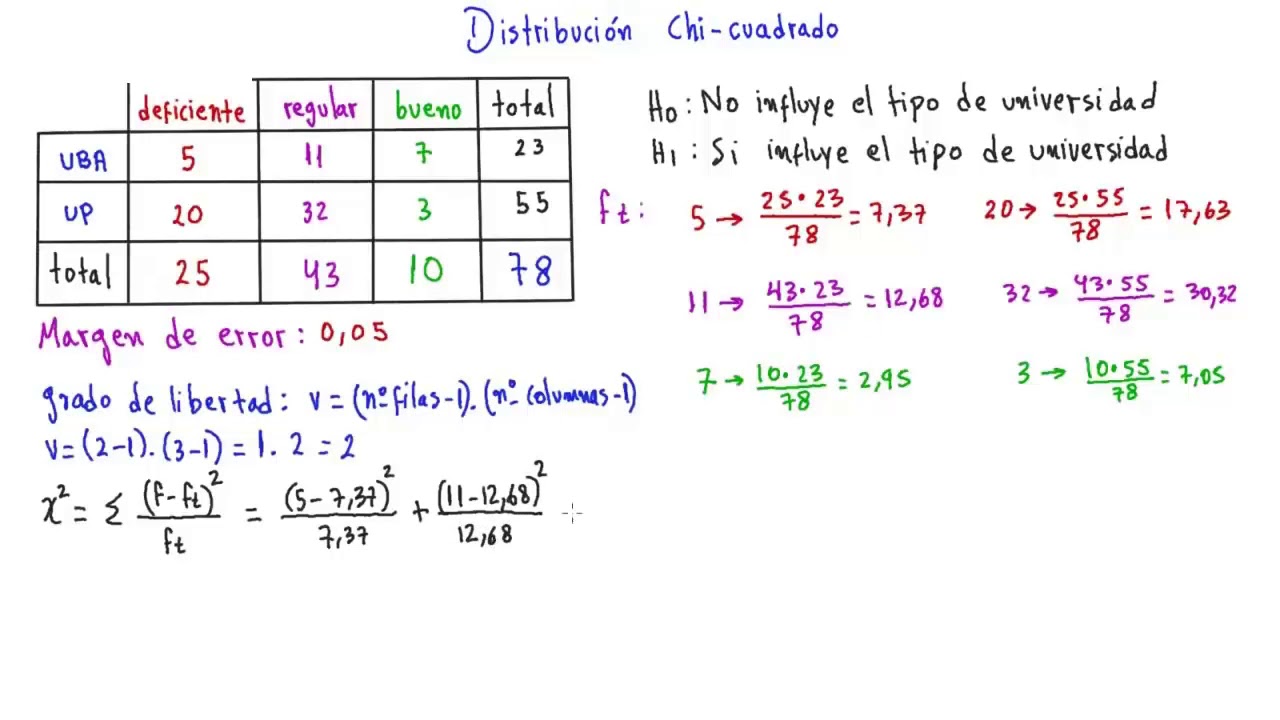 Distribución Chi-cuadrado
deficiente regular bueno total
UBA 5 11 7 23
UP 20 32 3 55
total 25 43 10 78
Margen de error: 0,05
grado de libertad: v = (nº filas-1).(nº columnas-1)
v=(2-1).(3-1) = 1. 2 = 2
x² = Σ (f-ft)²/ft = (5-7,37)²/7,37 + (11-12,68)²/12,68
H₀: No influye el tipo de universidad
H₁: Si influye el tipo de universidad
ft: 5 → 25·23/78 = 7,37 20 → 25·55/78 = 17,63
11 → 43·23/78 = 12,68 32 → 43·55/78 = 30,32
7 → 10·23/78 = 2,95 3 → 10·55/78 = 7,05